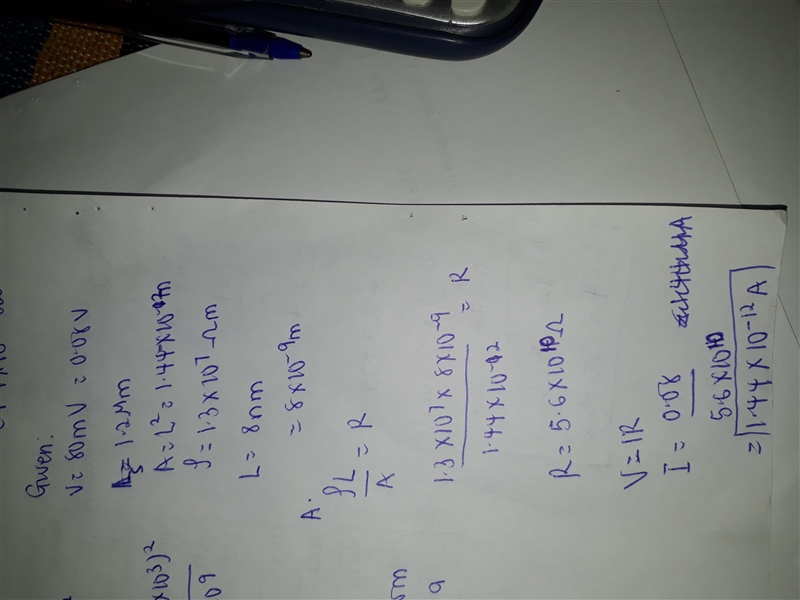 Given:
V = 80mV = 0.08V
= 1.2μm
A = L² = 1.44×10⁻¹²m
ρ = 1.3×10⁷ Ωm
L = 8nm
= 8×10⁻⁹m
A.
ρL/A = R
1.3×10⁷ × 8×10⁻⁹ / 1.44×10⁻¹² = R
R = 5.6×10¹⁰Ω
V = IR
I = 0.08 / 5.6×10¹⁰
= 1.44×10⁻¹²A
×10³)²
09
9